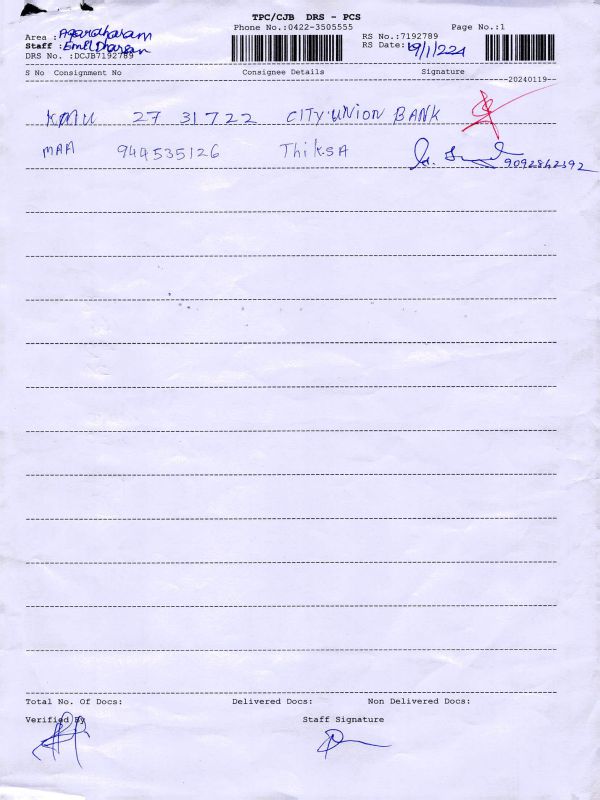 TPC/CJB DRS - PCS
Phone No.:0422-3505555 Page No.:1
Area : Agaradharam RS No.:7192789
Staff : RS Date: 19/1/224
DRS No. :DCJB7192789
S No Consignment No Consignee Details Signature
20240119
KMU 27 31722 CITY UNION BANK
MAA 944535126 ThiksA 9092862392
Total No. Of Docs: Delivered Docs: Non Delivered Docs:
Verified By Staff Signature